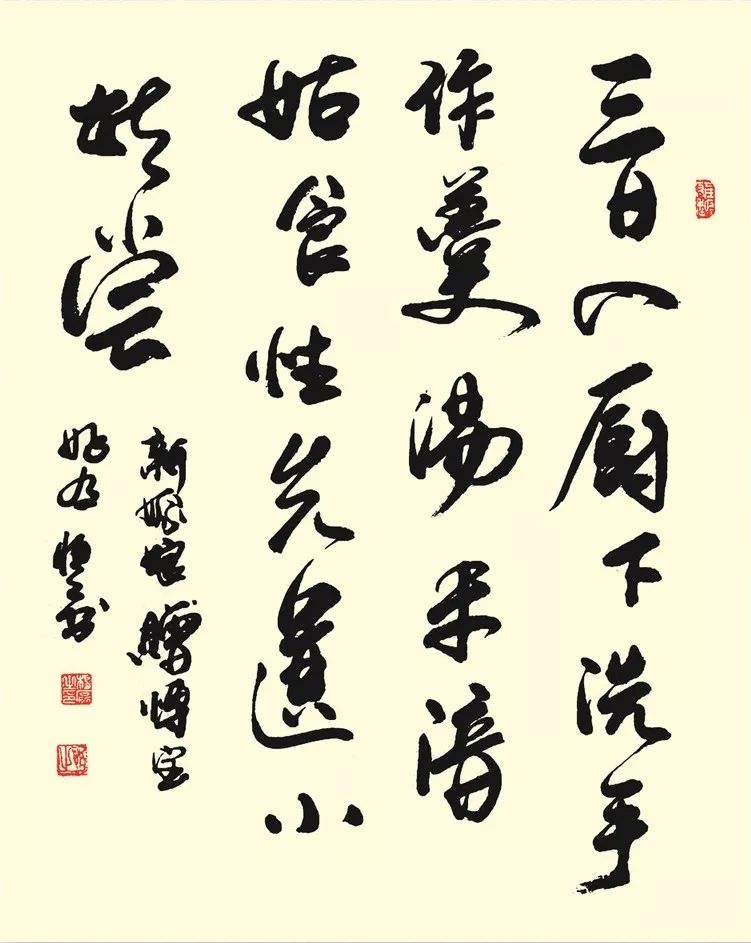 三日入厨下洗手
作羹湯未谙
姑食性先遣小
姑尝
新嫁娘